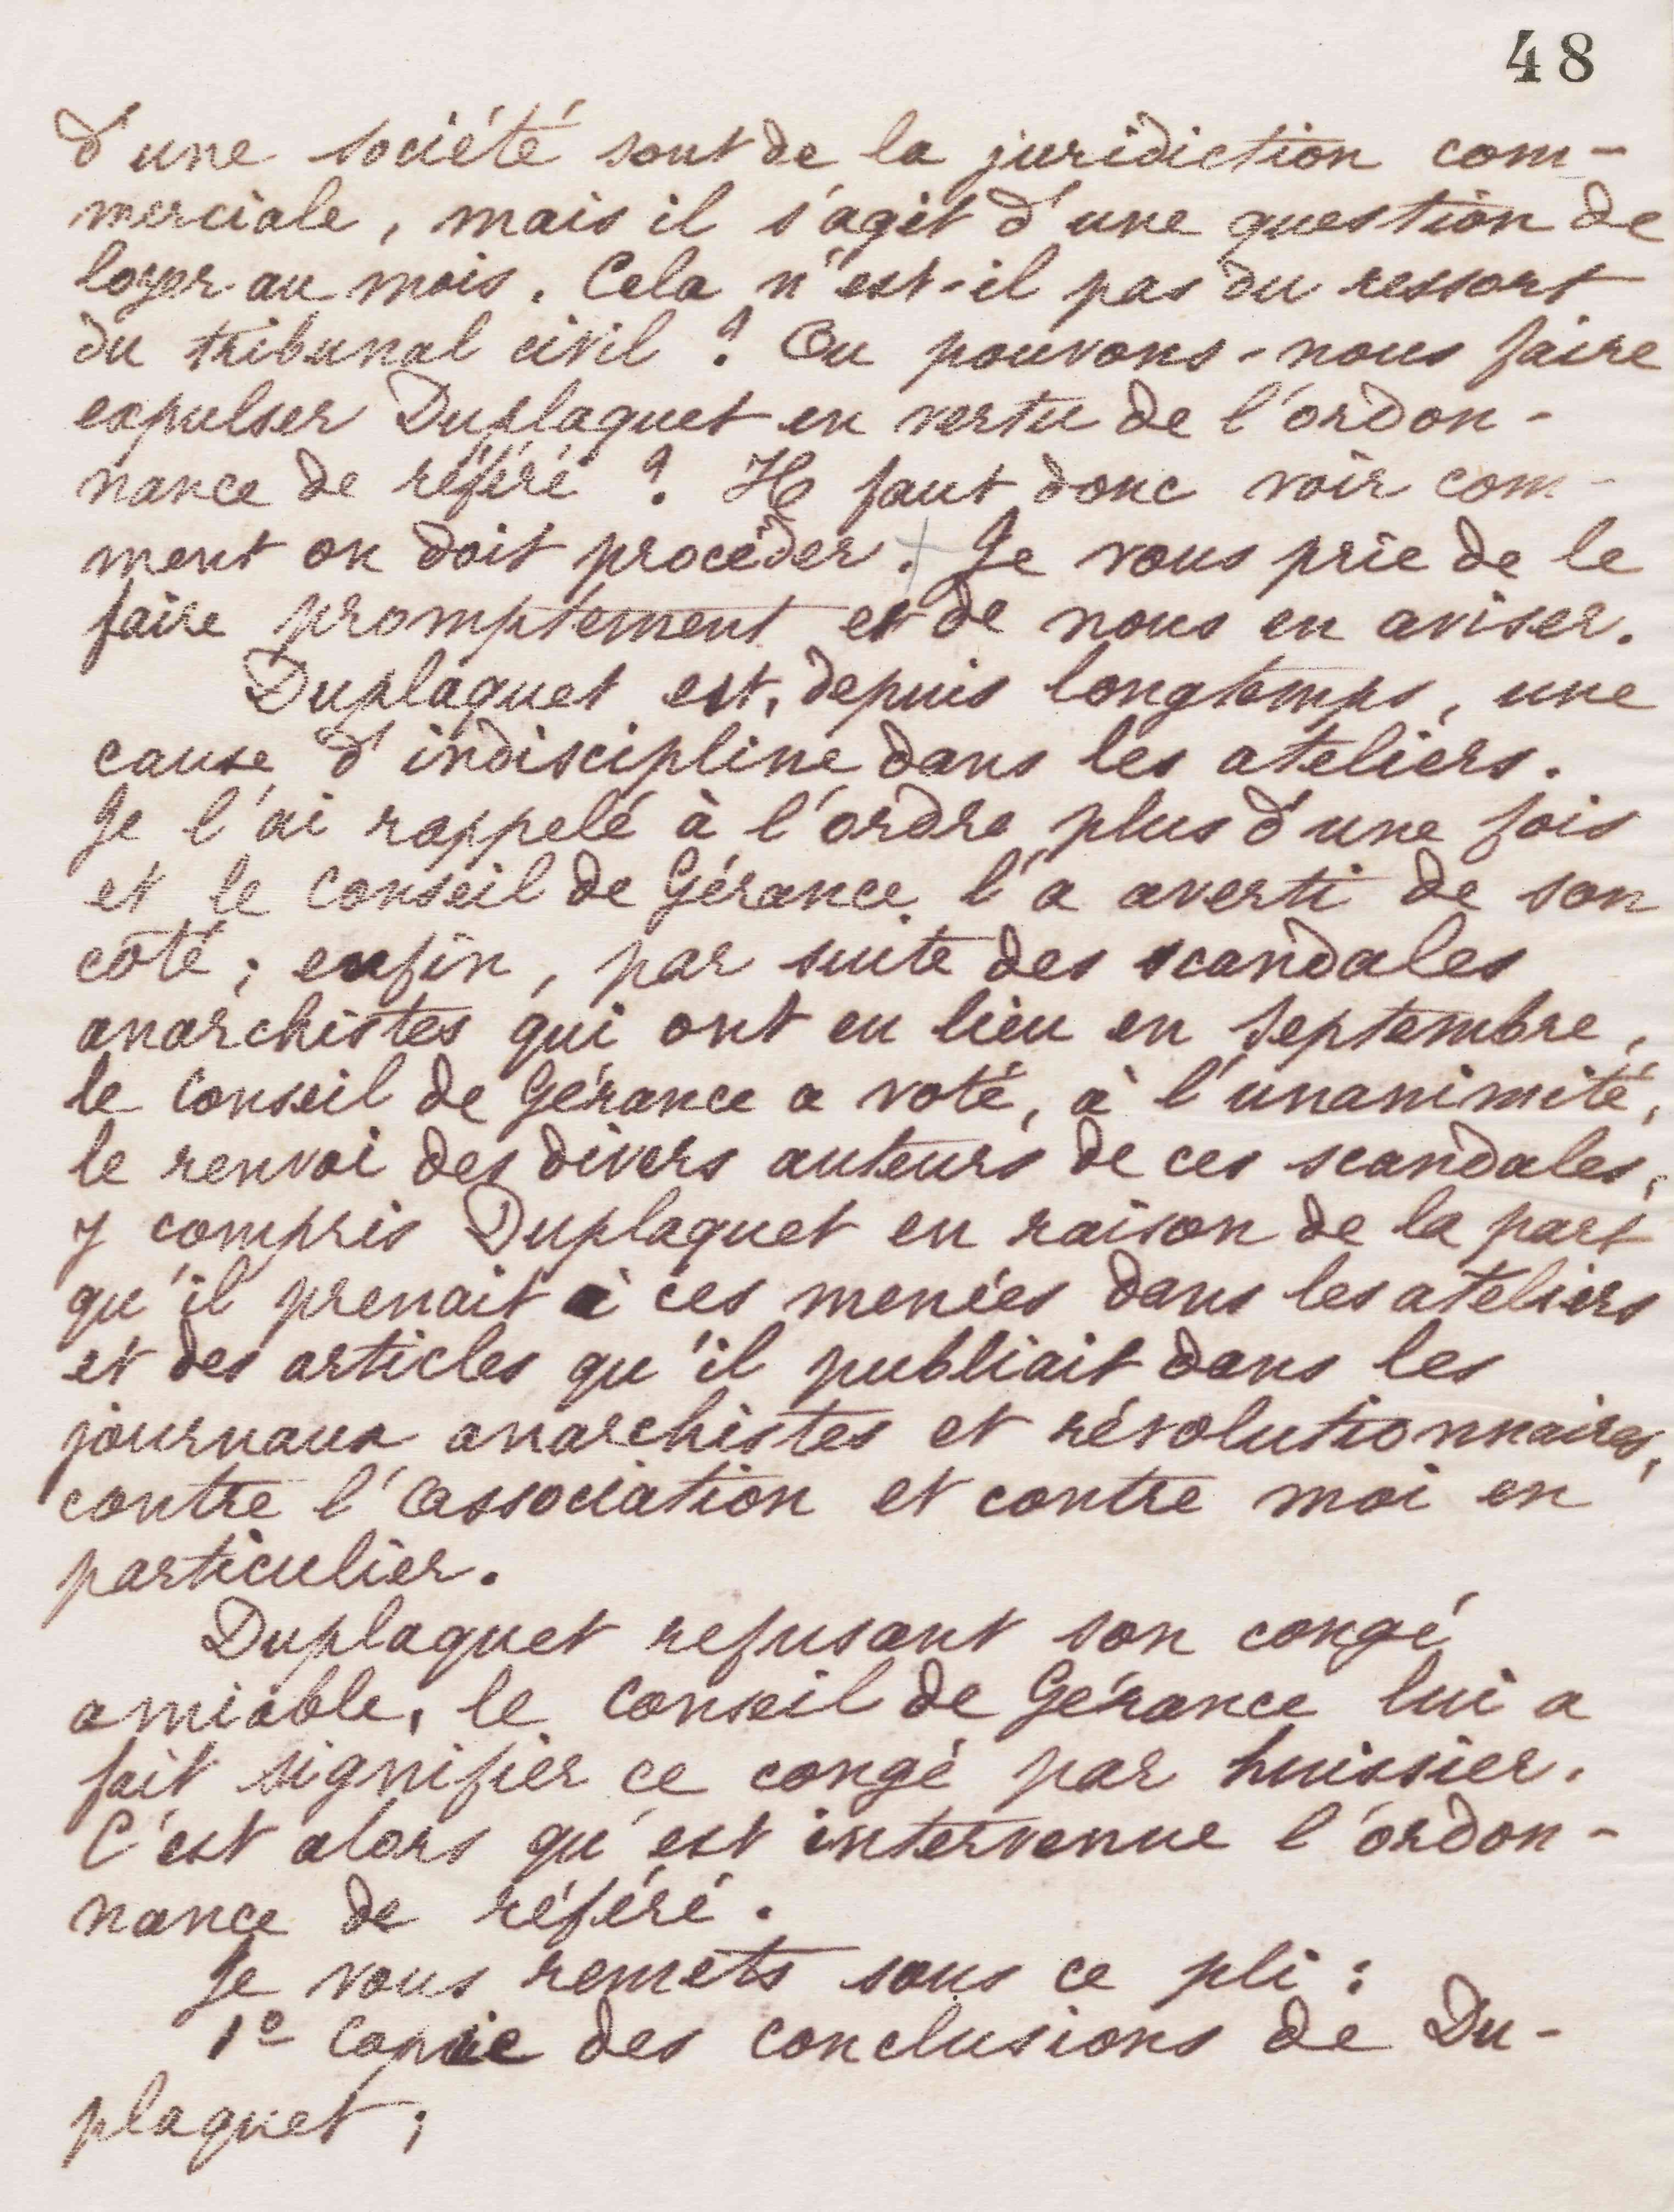 48
d'une société sont de la juridiction com-
merciale, mais il s'agit d'une question de
loyer au mois. Cela n'est-il pas du ressort
du tribunal civil ? Ou pouvons-nous faire
expulser Duplaquet en vertu de l'ordon-
nance de référé ? Il faut donc voir com-
ment on doit procéder. Je vous prie de le
faire promptement et de nous en aviser.
Duplaquet est, depuis longtemps, une
cause d'indiscipline dans les ateliers.
Je l'ai rappelé à l'ordre plus d'une fois
et le Conseil de Gérance l'a averti de son
côté ; enfin, par suite des scandales
anarchistes qui ont eu lieu en Septembre,
le Conseil de Gérance a voté, à l'unanimité,
le renvoi des divers auteurs de ces scandales,
y compris Duplaquet en raison de la part
qu'il prenait à ces menées dans les ateliers
et des articles qu'il publiait dans les
journaux anarchistes et révolutionnaires,
contre l'Association et contre moi en
particulier.
Duplaquet refusant son congé
amiable, le Conseil de Gérance lui a
fait signifier ce congé par huissier.
C'est alors qu'est intervenue l'ordon-
nance de référé.
Je vous remets sous ce pli :
1º Copie des conclusions de Du-
plaquet ;